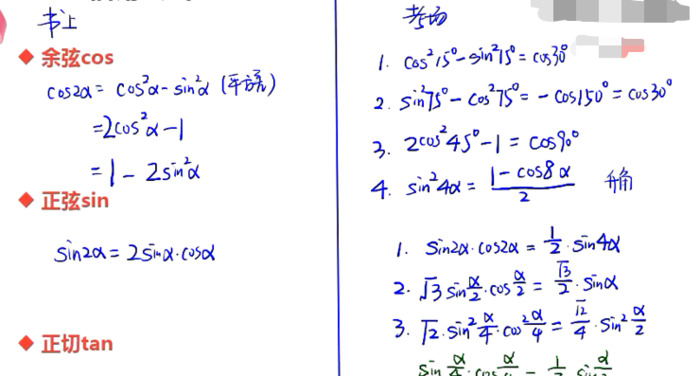 书上
◆ 余弦cos
cos2α = cos²α - sin²α (平方差)
= 2cos²α - 1
= 1 - 2sin²α
◆ 正弦sin
sin2α = 2sinα·cosα
◆ 正切tan
考场
1. cos²15° - sin²15° = cos30°
2. sin²75° - cos²75° = - cos150° = cos30°
3. 2cos²45° - 1 = cos90°
4. sin²4α = (1 - cos8α)/2 升角
1. sin2α·cos2α = 1/2·sin4α
2. √3 sin α/2·cos α/2 = √3/2·sinα
3. √2·sin² α/4·cos² α/4 = √2/4·sin² α/2
sin α/4·cos α/4 = 1/2 sin α/2